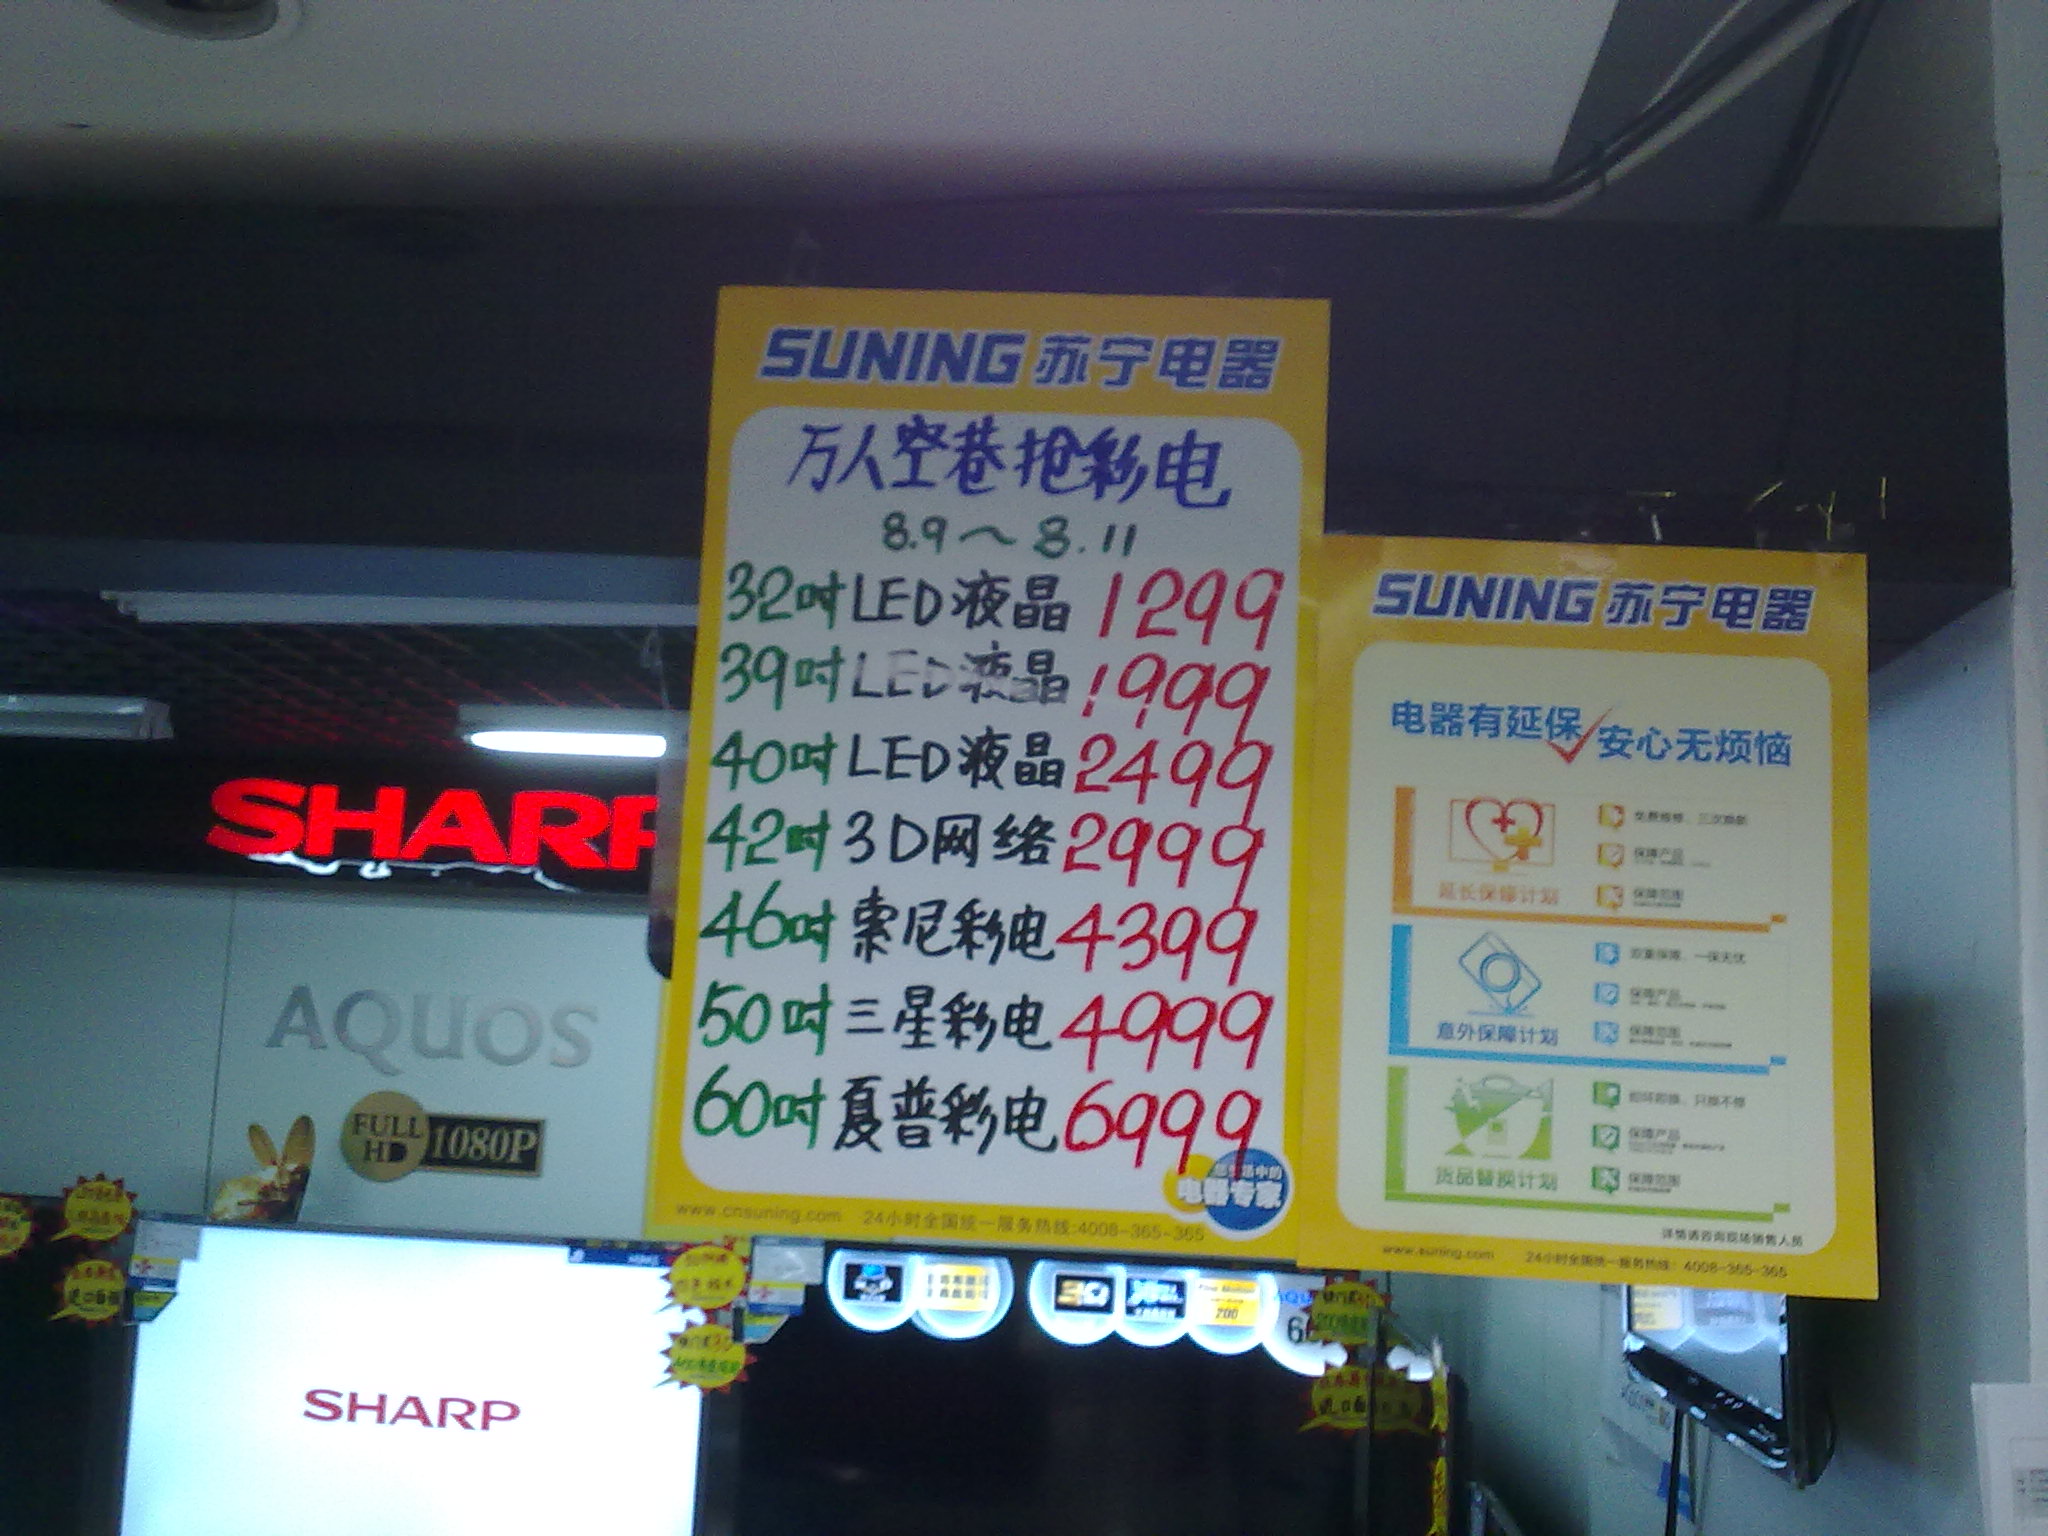 SUNING 苏宁电器
万人空巷抢彩电
8.9～8.11
32吋 LED液晶 1299
39吋 LED液晶 1999
40吋 LED液晶 2499
42吋 3D网络 2999
46吋 索尼彩电 4399
50吋 三星彩电 4999
60吋 夏普彩电 6999
电器专家
www.cnsuning.com 24小时全国统一服务热线:4008-365-365
SUNING 苏宁电器
电器有延保 安心无烦恼
延长保障计划
保障产品
保障范围
意外保障计划
保障产品
保障范围
货品替换计划
保障产品
保障范围
详情请咨询现场销售人员
www.suning.com 24小时全国统一服务热线: 4008-365-365
SHARP
AQUOS
FULL HD 1080P
SHARP
3D
200